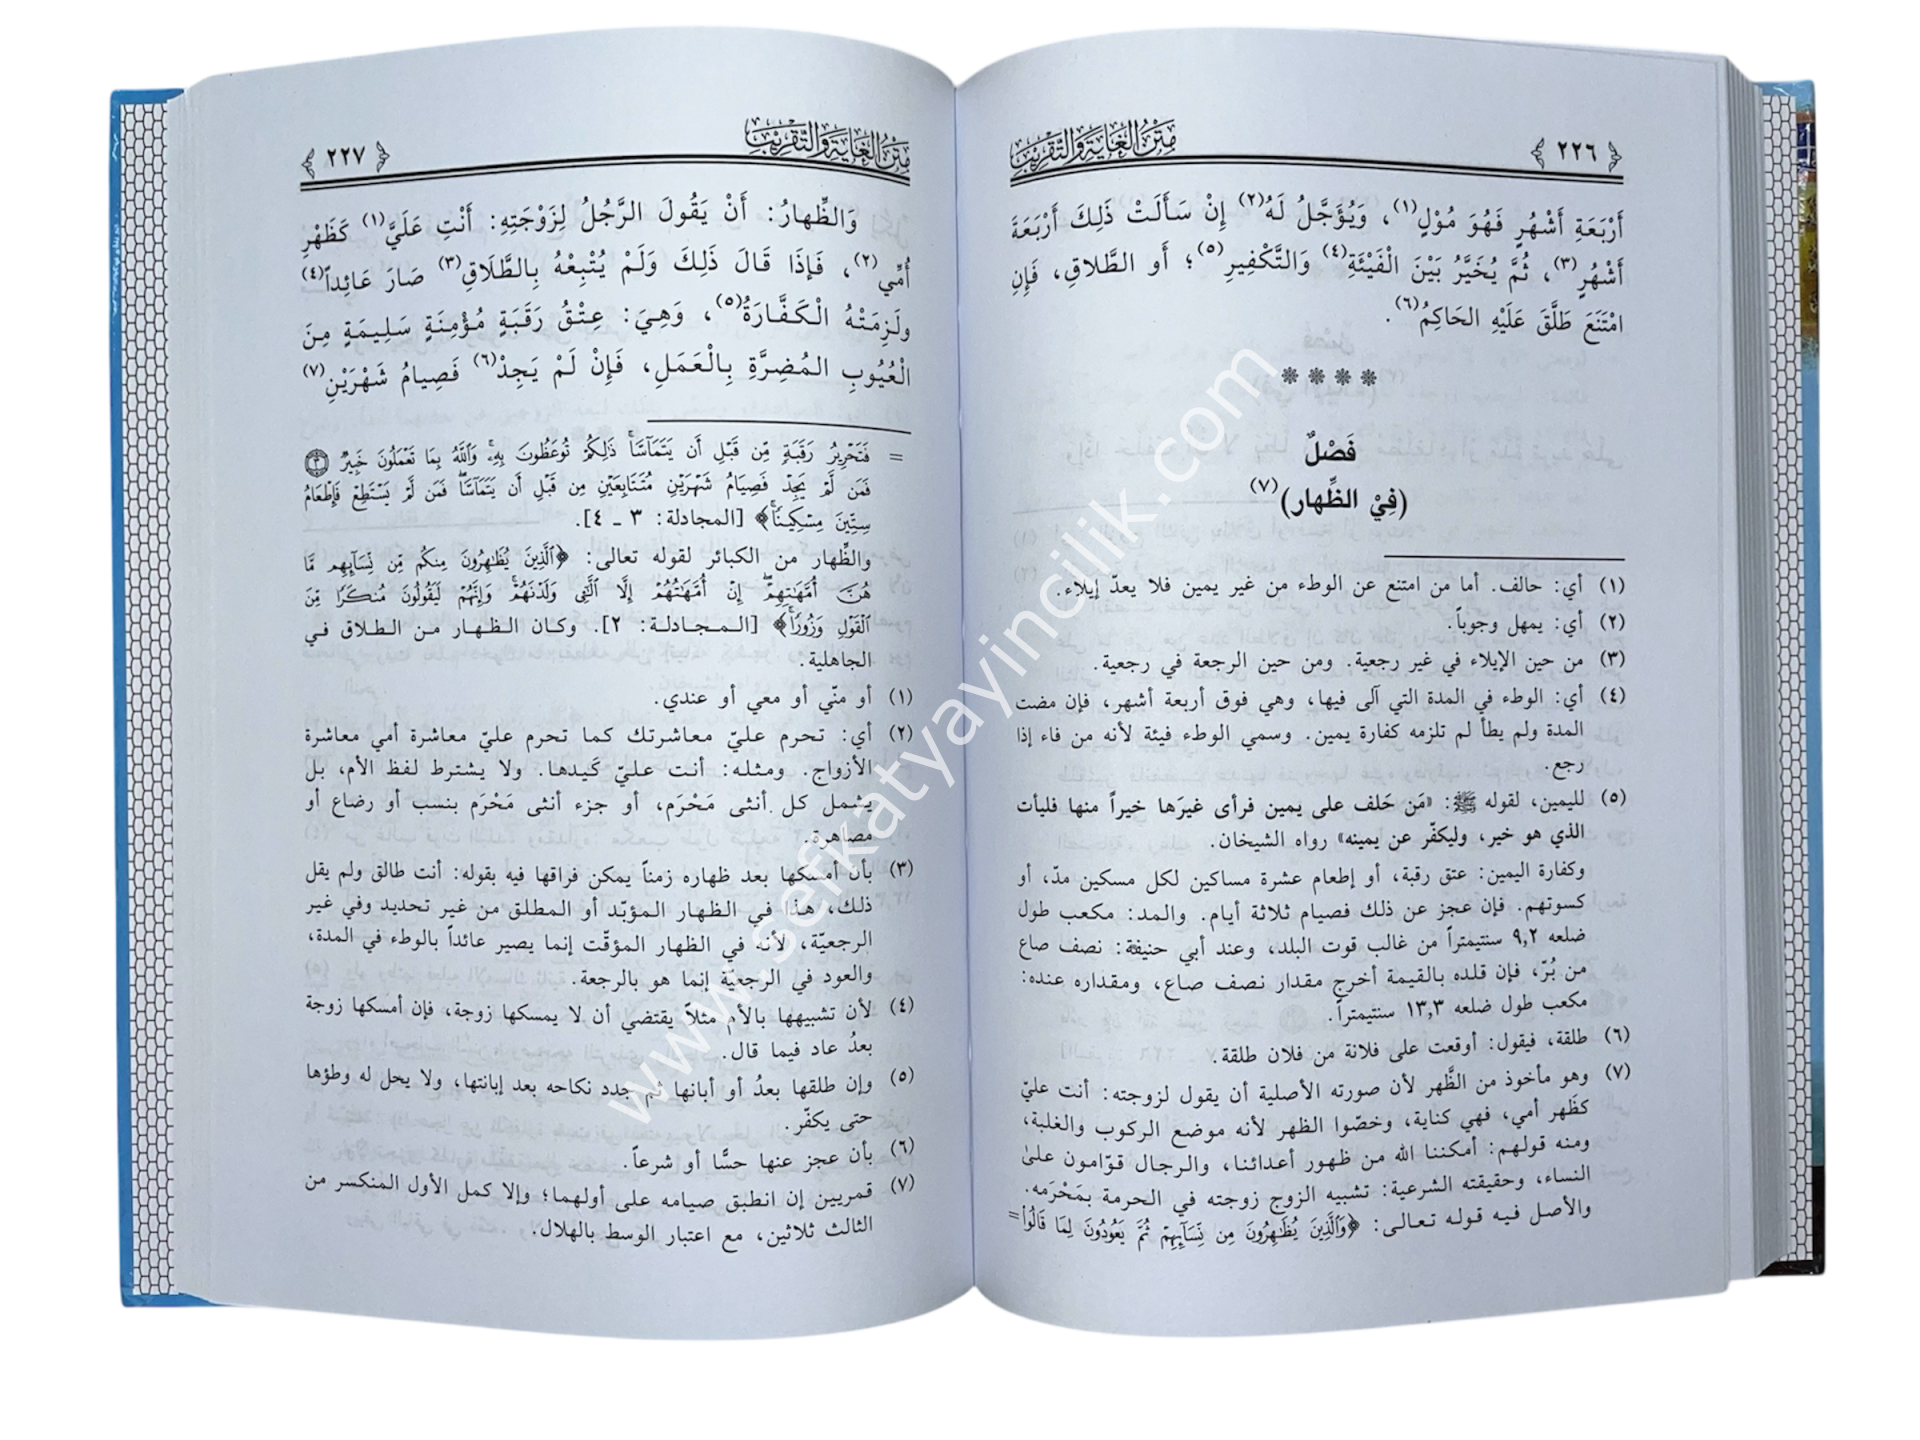 متن الغاية والتقريب
٢٢٦
أَرْبَعَةِ أَشْهُرٍ فَهُوَ مُوْلٍ(١)، وَيُؤَجَّلُ لَهُ(٢) إِنْ سَأَلَتْ ذَلِكَ أَرْبَعَةَ
أَشْهُرٍ(٣)، ثُمَّ يُخَيَّرُ بَيْنَ الْفَيْئَةِ(٤) وَالتَّكْفِيرِ(٥)؛ أَو الطَّلاقِ، فَإِنِ
امْتَنَعَ طَلَّقَ عَلَيْهِ الحَاكِمُ(٦).
فَصْلٌ
(فِيْ الظِّهار)(٧)
(١) أي: حالف. أما من امتنع عن الوطء من غير يمين فلا يعدّ إيلاء.
(٢) أي: يمهل وجوباً.
(٣) من حين الإيلاء في غير رجعية. ومن حين الرجعة في رجعية.
(٤) أي: الوطء في المدة التي آلى فيها، وهي فوق أربعة أشهر، فإن مضت
المدة ولم يطأ لم تلزمه كفارة يمين. وسمي الوطء فيئة لأنه من فاء إذا
رجع.
(٥) لليمين، لقوله ﷺ: «مَن حَلف على يمين فرأى غيرَها خيراً منها فليأت
الذي هو خير، وليكفّر عن يمينه» رواه الشيخان.
وكفارة اليمين: عتق رقبة، أو إطعام عشرة مساكين لكل مسكين مدّ، أو
كسوتهم. فإن عجز عن ذلك فصيام ثلاثة أيام. والمد: مكعب طول
ضلعه ٩,٢ سنتيمتراً من غالب قوت البلد، وعند أبي حنيفة: نصف صاع
من بُرّ، فإن قلده بالقيمة أخرج مقدار نصف صاع، ومقداره عنده:
مكعب طول ضلعه ١٣,٣ سنتيمتراً.
(٦) طلقة، فيقول: أوقعت على فلانة من فلان طلقة.
(٧) وهو مأخوذ من الظَّهر لأن صورته الأصلية أن يقول لزوجته: أنت عليّ
كظَهر أمي، فهي كناية، وخصّوا الظهر لأنه موضع الركوب والغلبة،
ومنه قولهم: أمكننا الله من ظهور أعدائنا، والرجال قوّامون علىٰ
النساء، وحقيقته الشرعية: تشبيه الزوج زوجته في الحرمة بمَحْرَمه.
والأصل فيه قوله تعالى: ﴿وَالَّذِينَ يُظَاهِرُونَ مِن نِّسَآئِهِمْ ثُمَّ يَعُودُونَ لِمَا قَالُواْ =
متن الغاية والتقريب
٢٢٧
وَالظِّهارُ: أَنْ يَقُولَ الرَّجُلُ لِزَوْجَتِهِ: أَنْتِ عَلَيَّ(١) كَظَهْرِ
أُمِّي(٢)، فَإذَا قَالَ ذَلِكَ وَلَمْ يُتْبِعْهُ بِالطَّلَاقِ(٣) صَارَ عَائِداً(٤)
ولَزِمَتْهُ الْكَفَّارَةُ(٥)، وَهِيَ: عِتْقُ رَقَبَةٍ مُؤْمِنَةٍ سَلِيمَةٍ مِنَ
الْعُيُوبِ المُضِرَّةِ بِالْعَمَلِ، فَإِنْ لَمْ يَجِدْ(٦) فَصِيامُ شَهْرَيْنِ(٧)
= فَتَحْرِيرُ رَقَبَةٍ مِّن قَبْلِ أَن يَتَمَآسَّا ذَلِكُمْ تُوعَظُونَ بِهِ وَاللَّهُ بِمَا تَعْمَلُونَ خَبِيرٌ ٣
فَمَن لَّمْ يَجِدْ فَصِيَامُ شَهْرَيْنِ مُتَتَابِعَيْنِ مِن قَبْلِ أَن يَتَمَآسَّا فَمَن لَّمْ يَسْتَطِعْ فَإِطْعَامُ
سِتِّينَ مِسْكِينًا﴾ [المجادلة: ٣ ـ ٤].
والظِّهار من الكبائر لقوله تعالى: ﴿الَّذِينَ يُظَاهِرُونَ مِنكُم مِّن نِّسَآئِهِم مَّا
هُنَّ أُمَّهَاتِهِمْ إِنْ أُمَّهَاتُهُمْ إِلَّا الَّائِي وَلَدْنَهُمْ وَإِنَّهُمْ لَيَقُولُونَ مُنكَرًا مِّنَ
الْقَوْلِ وَزُورًا﴾ [المجادلة: ٢]. وكان الظهار من الطلاق في
الجاهلية.
(١) أو منّي أو معي أو عندي.
(٢) أي: تحرم عليّ معاشرتك كما تحرم عليّ معاشرة أمي معاشرة
الأزواج. ومثله: أنت عليّ كَيدها. ولا يشترط لفظ الأم، بل
يشمل كل أنثى مَحْرَم، أو جزء أنثى مَحْرَم بنسب أو رضاع أو
مصاهرة.
(٣) بأن أمسكها بعد ظهاره زمناً يمكن فراقها فيه بقوله: أنت طالق ولم يقل
ذلك، هذا في الظهار المؤبّد أو المطلق من غير تحديد وفي غير
الرجعيّة، لأنه في الظهار المؤقّت إنما يصير عائداً بالوطء في المدة،
والعود في الرجعيّة إنما هو بالرجعة.
(٤) لأن تشبيهها بالأم مثلاً يقتضي أن لا يمسكها زوجة، فإن أمسكها زوجة
بعدُ عاد فيما قال.
(٥) وإن طلقها بعدُ أو أبانها ثم جدد نكاحه بعد إبانتها، ولا يحل له وطؤها
حتى يكفّر.
(٦) بأن عجز عنها حسًّا أو شرعاً.
(٧) قمريين إن انطبق صيامه على أولهما؛ وإلا كمل الأول المنكسر من
الثالث ثلاثين، مع اعتبار الوسط بالهلال.
www.sefkatyayincilik.com